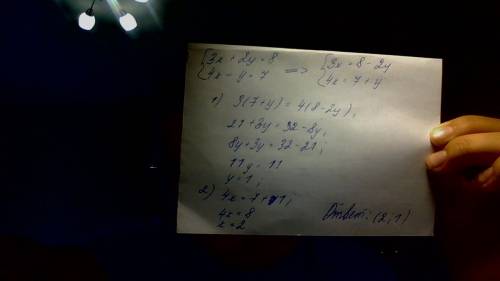 {3x + 2y = 8
{4x - y = 7 => {3x = 8 - 2y
{4x = 7 + y
1) 3(7+y) = 4(8-2y);
21 + 3y = 32 - 8y;
8y + 3y = 32 - 21;
11y = 11
y = 1;
2) 4x = 7 + 1;
4x = 8
x = 2
Ответ: (2;1)